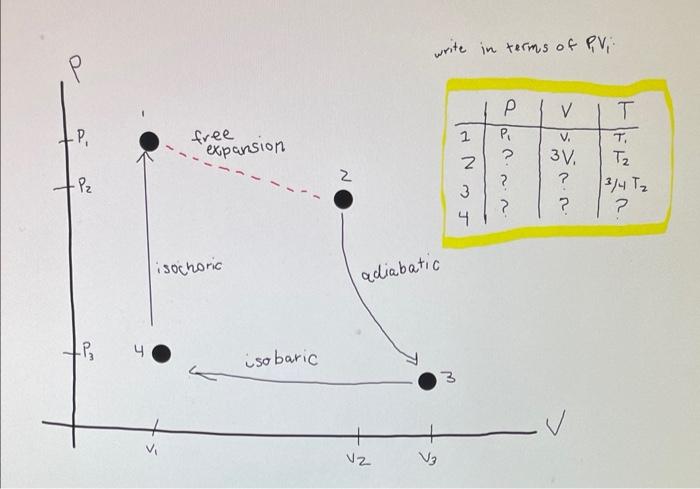 write in terms of P₁V₁:
P
P V T
1 P₁ V₁ T₁
2 ? 3V₁ T₂
3 ? ? 3/4 T₂
4 ? ? ?
1
P₁
free
expansion
2
P₂
isochoric
adiabatic
P₃
4
isobaric
3
V
V₁
V2
V₃